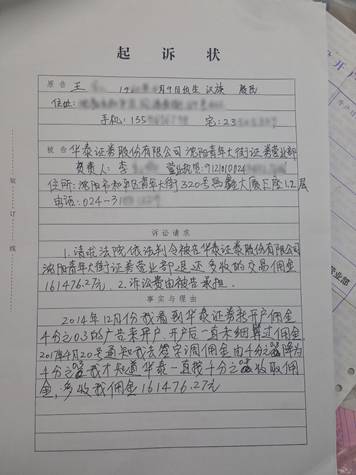 起诉状
原告 王 19 月9日出生 汉族 居民
住址:
手机:155 宅:23
被告 华泰证券股份有限公司沈阳青年大街证券营业部
负责人:李 营业执照:91210102
住所:沈阳市和平区青年大街320号 大厦B座12层
电话:024-31
诉讼请求
1.请求法院依法判令被告华泰证券股份有限公司
沈阳青年大街证券营业部退还多收的交易佣金
161476.27元.2.诉讼费由被告承担.
事实与理由
2014年12月份我看到华泰证券按开户佣金
千分之03的广告来开户.开户后一直未细算过佣金
2017年4月20号通知我去签字调佣金由千分之 降为
千分之 我才知道华泰一直按千分之 收取佣
金,多收我佣金161476.27元
装订线